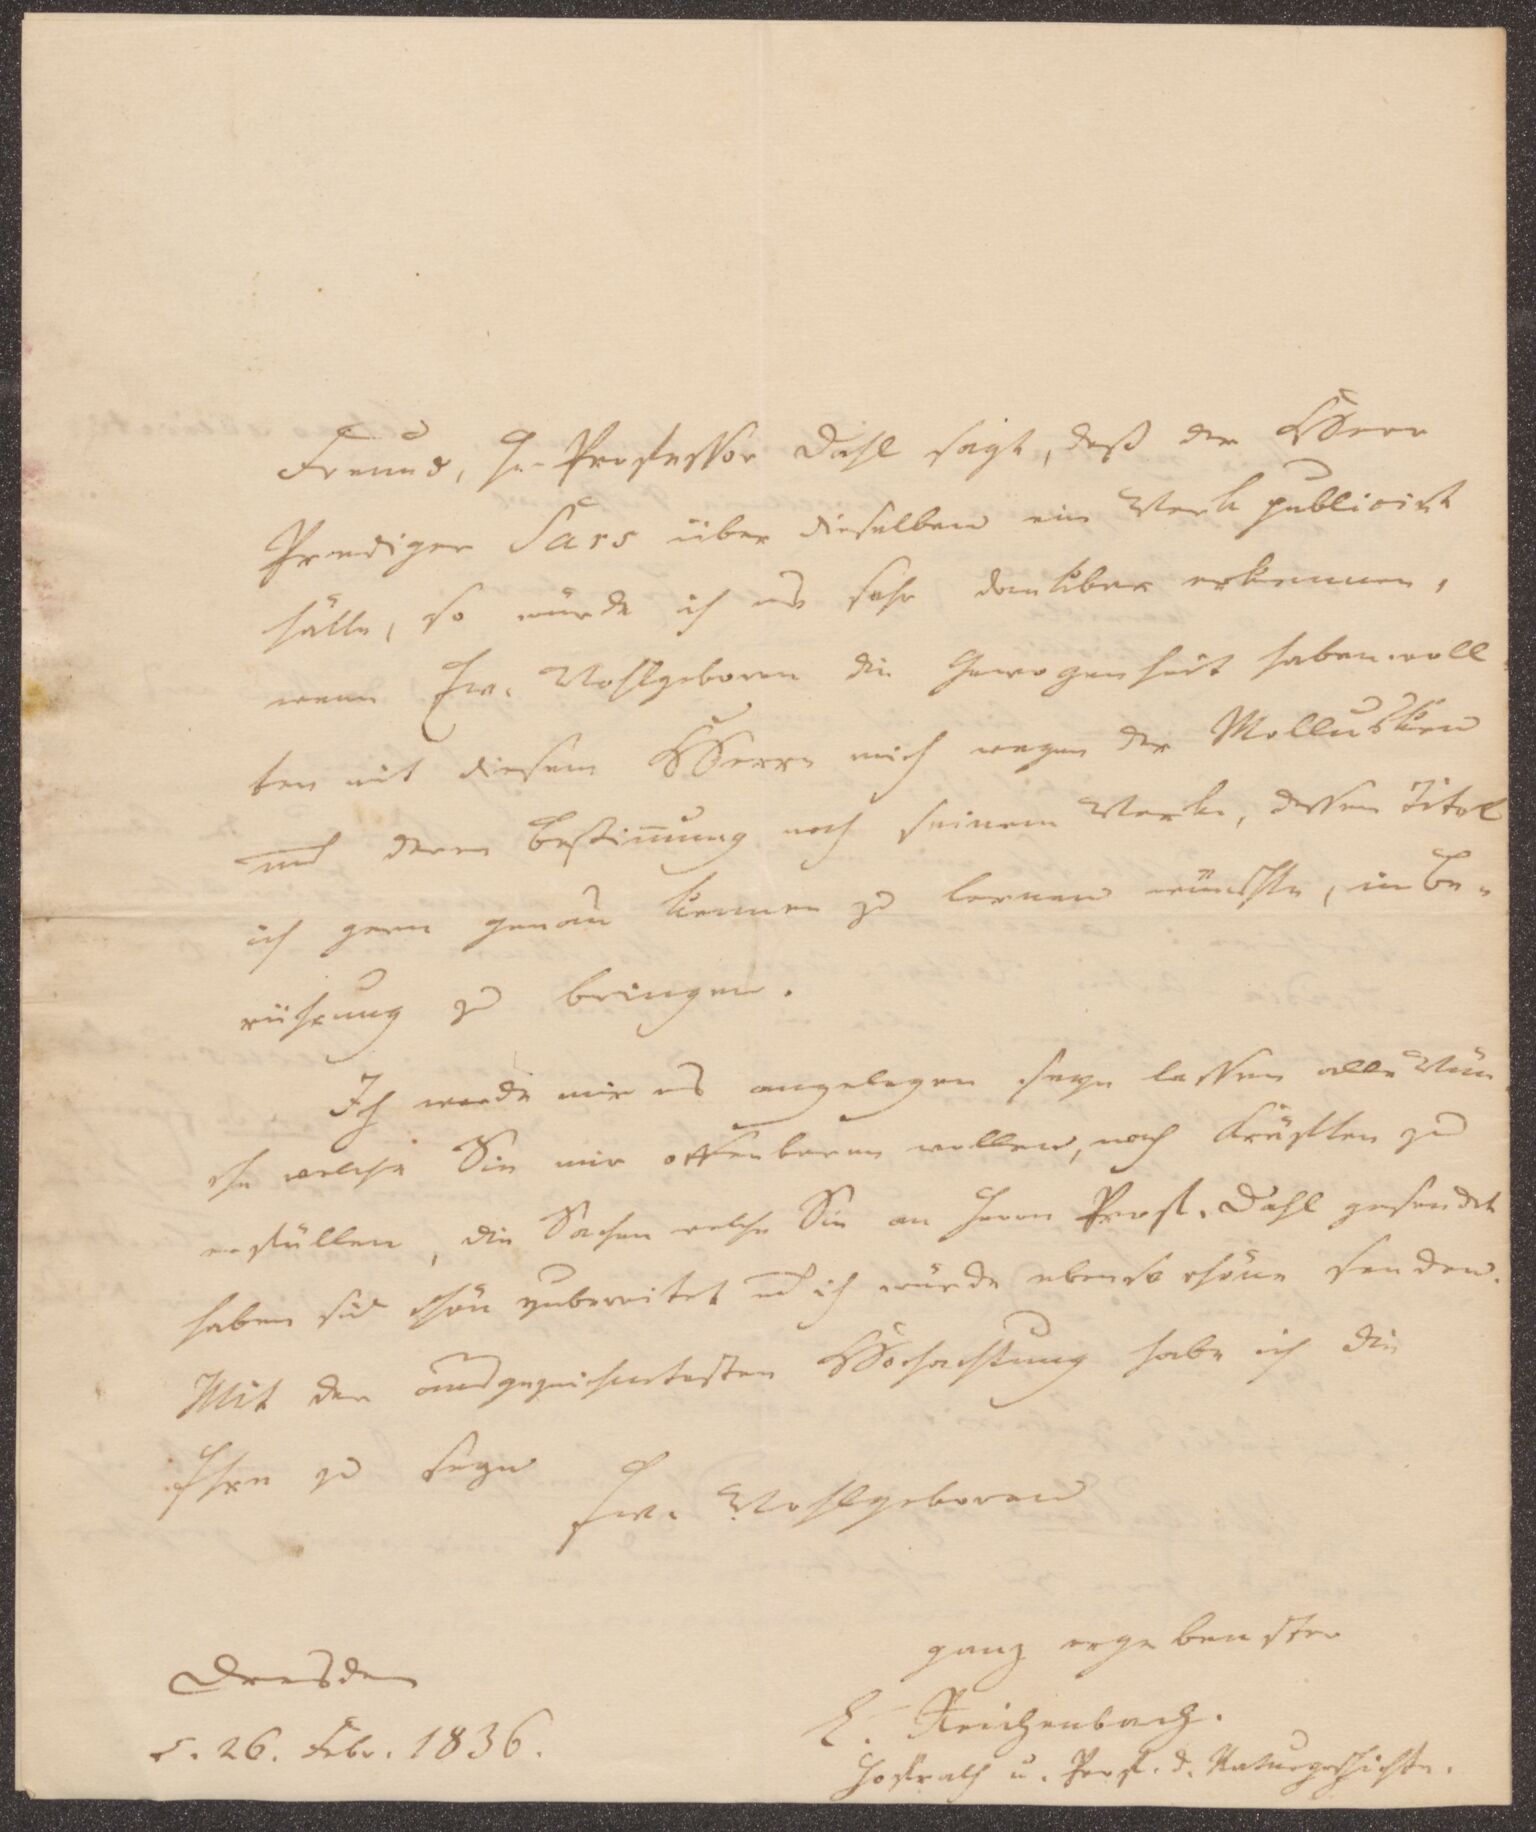 Freund, Hr. Professor Dahl sagt, daß der Herr
Prediger Sars über dieselben ein Werk publicirt
hätte, so würde ich es sehr dankbar erkennen,
wenn Ew. Wohlgeboren die Gewogenheit haben woll
ten mit diesem Herrn mich wegen der Mollusken
und deren Bestim̅ung nach seinem Werke, dessen Titel
ich gern genau kennen zu lernen wünschte, in Be-
rührung zu bringen.
Ich werde mir es angelegen seyn lassen alle Wün
sche welche Sie mir offenbaren wollen, nach Kräften zu
erfüllen, die Sachen welche Sie an Herrn Prof. Dahl gesendet
haben sind schön zubereitet und ich würde ebenso schöne senden.
Mit der ausgezeichnetesten Hochachtung habe ich die
Ehre zu seyn
Ew. Wohlgeboren
ganz ergebenster
Dresden
L. Reichenbach.
d. 26. Febr. 1836.
Hofrath u. Prof. d. Naturgeschichte.